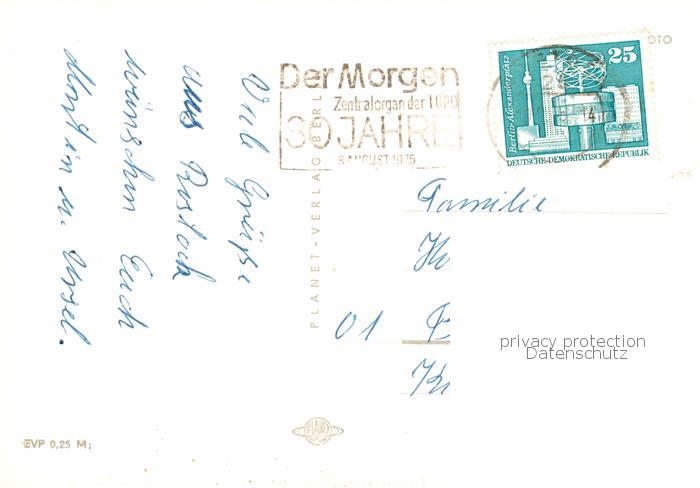 Viele Grüße
aus Rostock
wünschen Euch
u. Ursel.
PLANET-VERLAG BERL
Der Morgen
Zentralorgan der LDPD
30 JAHRE
3 AUGUST 1975
25
Berlin-Alexanderplatz
DEUTSCHE·DEMOKRATISCHE·REPUBLIK
14
OTO
Familie
01 B
privacy protection
Datenschutz
PLANET
EVP 0,25 M;